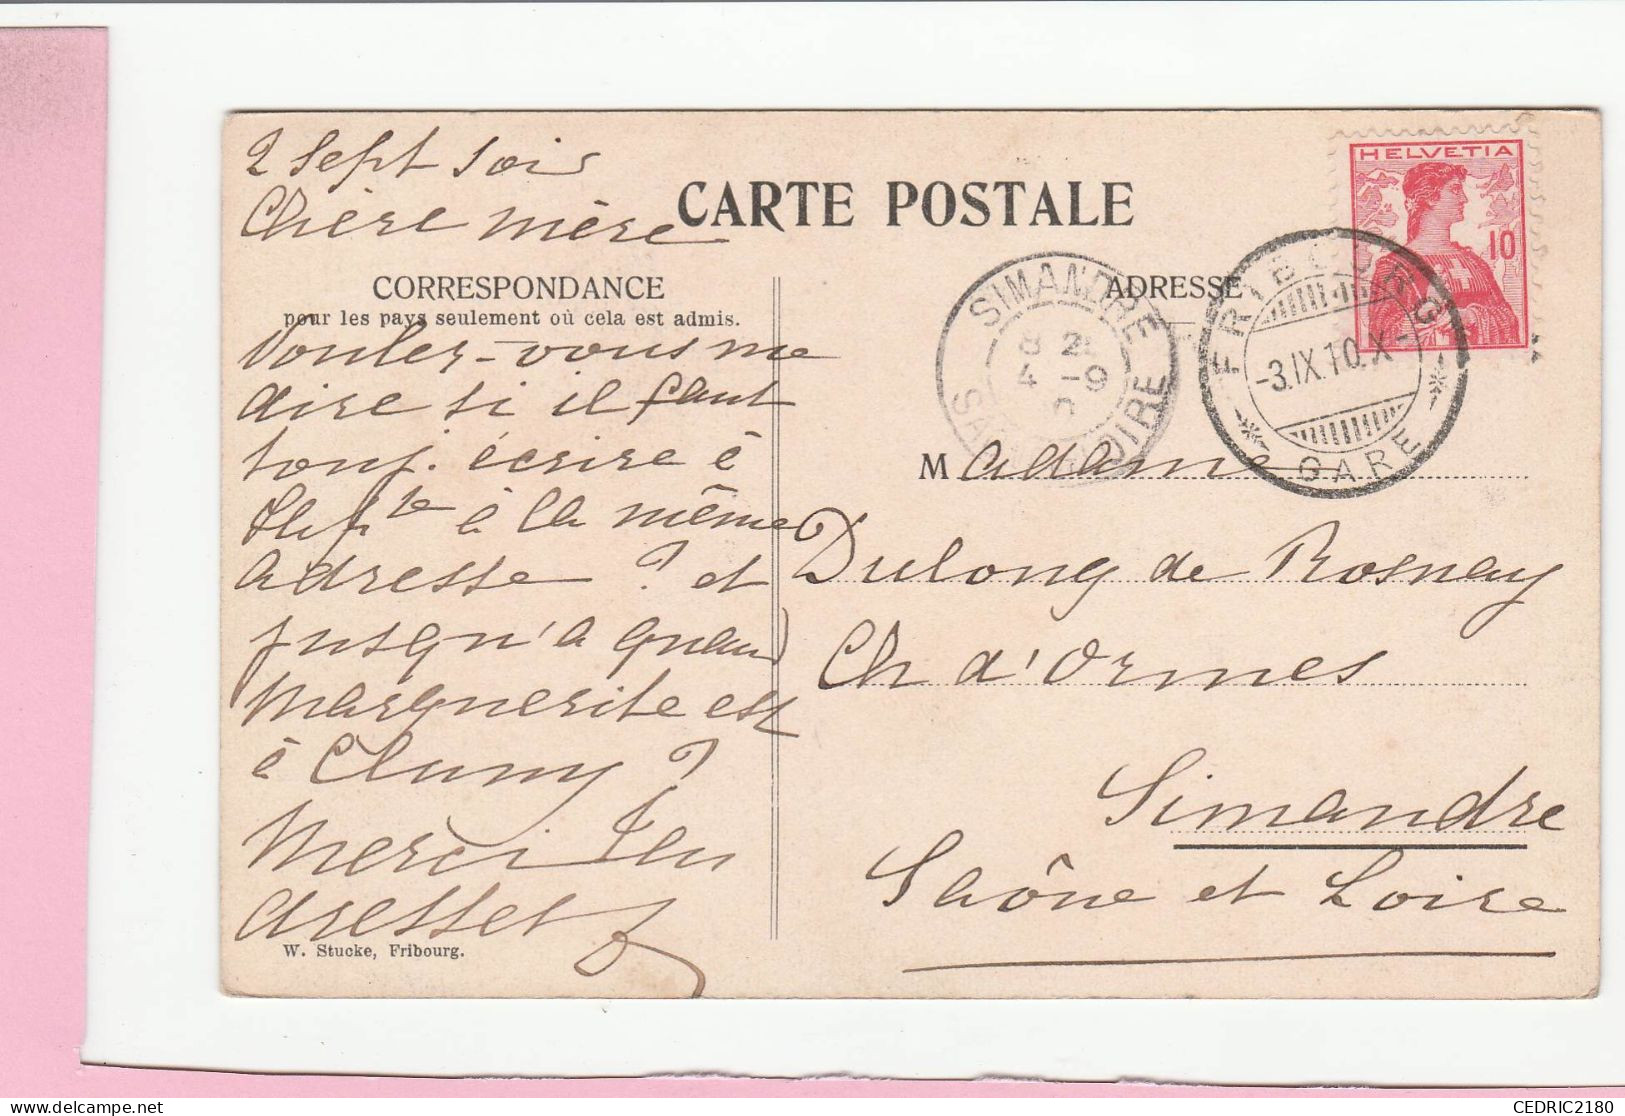 2 Sept soir
Chère mère
CARTE POSTALE
CORRESPONDANCE
pour les pays seulement où cela est admis.
Voulez-vous me
dire si il faut
touj. écrire à
à la même
adresse ? et
jusqu'à quand
Marguerite est
à Cluny ?
Merci
W. Stucke, Fribourg.
ADRESSE
HELVETIA
10
FRIBOURG
-3.IX.10.X-
GARE
SIMANDRE
Madame
Dulong de Rosnay
Ch d'Ormes
Simandre
Saône et Loire
CEDRIC2180